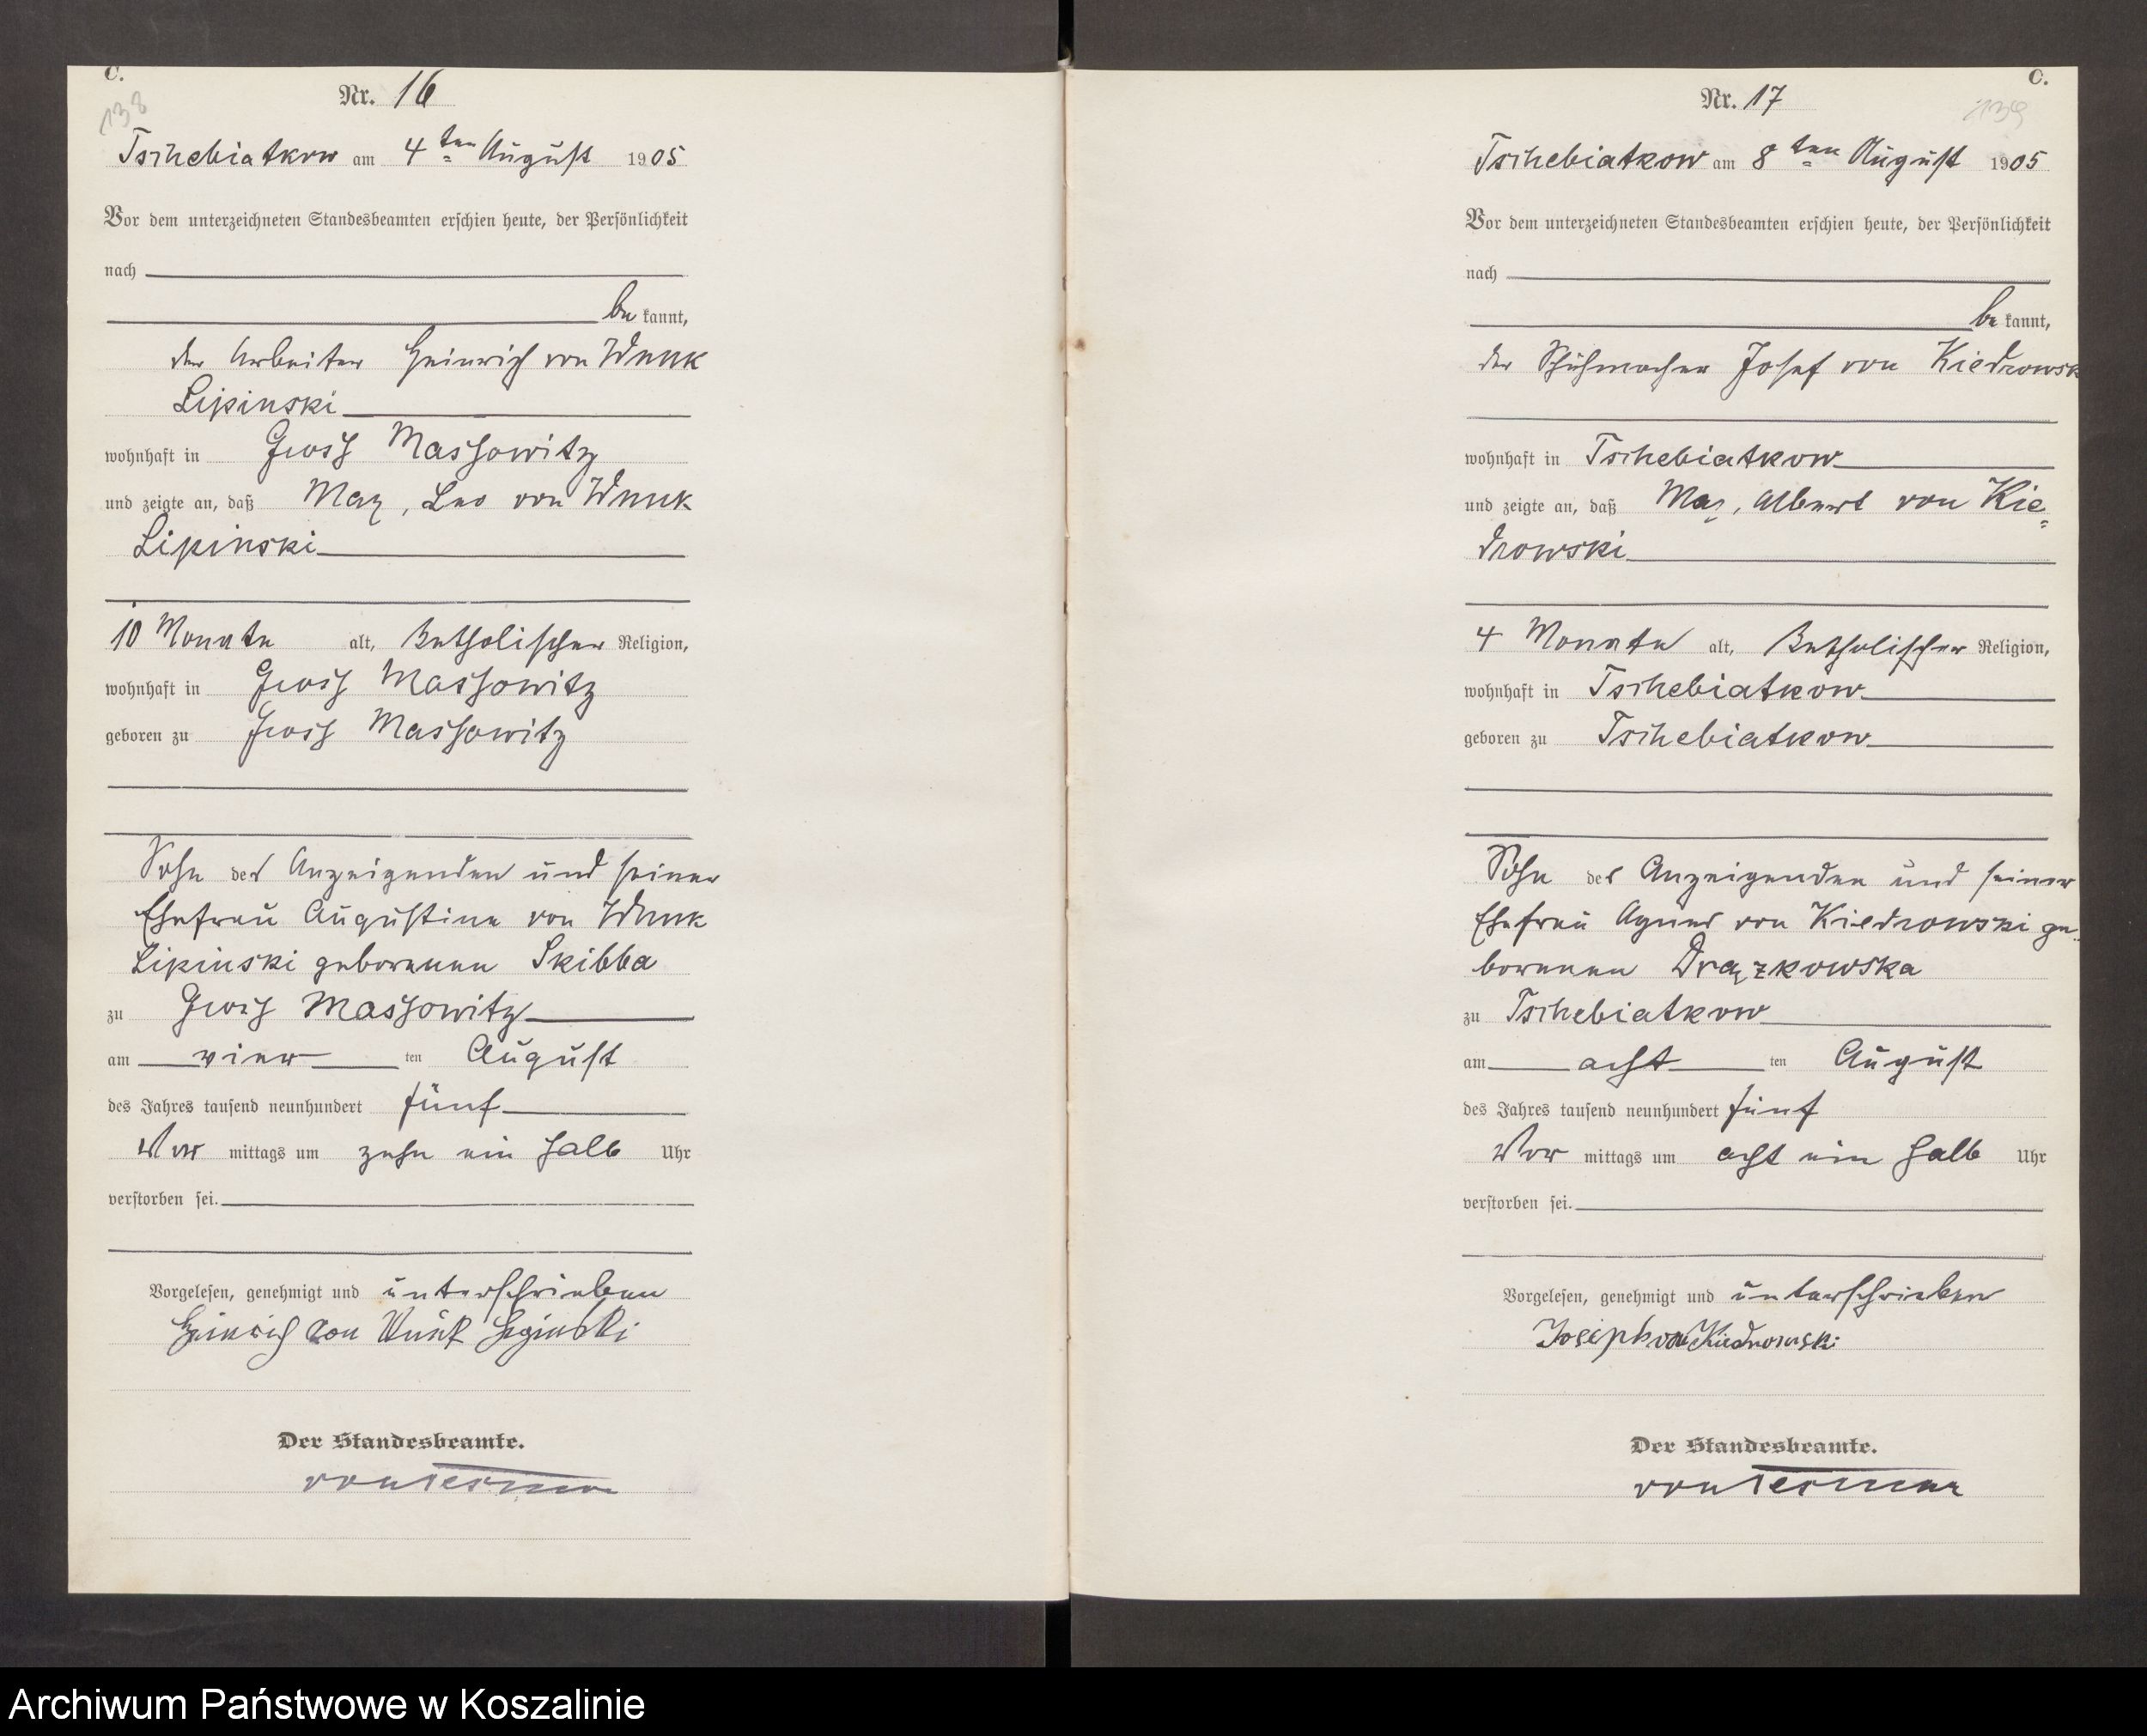 C.
138
Nr. 16
Tschebiatkow am 4ten August 1905
Vor dem unterzeichneten Standesbeamten erschien heute, der Persönlichkeit
nach
be kannt,
der Arbeiter Heinrich von Wnuk
Lipinski
wohnhaft in Gross Massowitz
und zeigte an, daß Max, Leo von Wnuk
Lipinski
10 Monate alt, katholischer Religion,
wohnhaft in Gross Massowitz
geboren zu Gross Massowitz
Sohn des Anzeigenden und seiner
Ehefrau Augustine von Wnuk
Lipinski geborenen Skibba
zu Gross Massowitz
am vier ten August
des Jahres tausend neunhundert fünf
Vor mittags um zehn ein halb Uhr
verstorben sei.
Vorgelesen, genehmigt und unterschrieben
Heinrich von Wnuk Lipinski
Der Standesbeamte.
C.
139
Nr. 17
Tschebiatkow am 8ten August 1905
Vor dem unterzeichneten Standesbeamten erschien heute, der Persönlichkeit
nach
be kannt,
der Schuhmacher Josef von Kiedrowski
wohnhaft in Tschebiatkow
und zeigte an, daß Max, Albert von Kie=
drowski
4 Monate alt, katholischer Religion,
wohnhaft in Tschebiatkow
geboren zu Tschebiatkow
Sohn des Anzeigenden und seiner
Ehefrau Agnes von Kiedrowski ge=
borenen Drązkowska
zu Tschebiatkow
am acht ten August
des Jahres tausend neunhundert fünf
Vor mittags um acht ein halb Uhr
verstorben sei.
Vorgelesen, genehmigt und unterschrieben
Joseph von Kiedrowski
Der Standesbeamte.
Archiwum Państwowe w Koszalinie